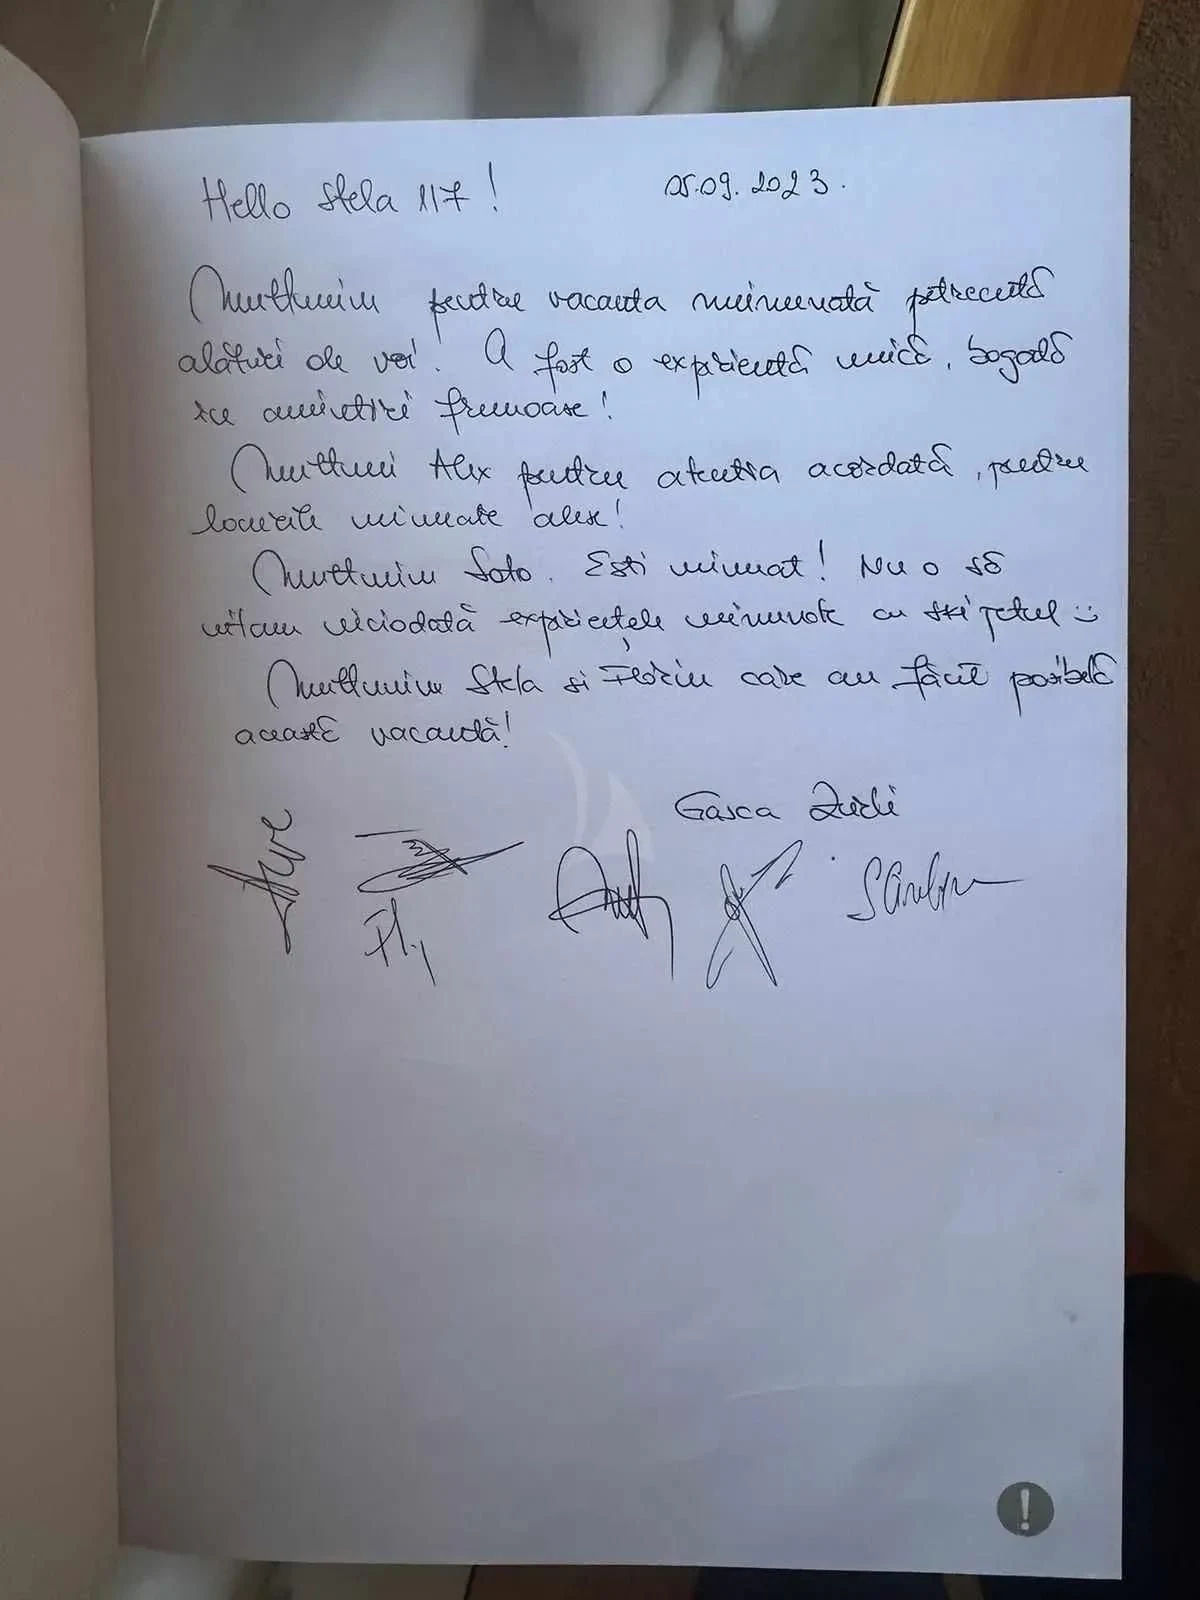 Hello Stela 117! 05.09.2023.
Multumim pentru vacanta minunată petrecută
alături de voi! A fost o experientă unică, bogată
in amintiri frumoase!
Multumi Alex pentru atentia acordată, pentru
locurile minunate alese!
Multumim Soto. Esti minunat! Nu o să
uitam niciodată experiențele minunate cu ski jetul :)
Multumim Stela si Florin care au făcut posibilă
această vacantă!
Gasca